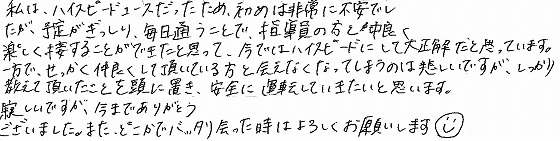 私は、ハイスピードコースだったため、初めは非常に不安でし
たが、予定がぎっしり、毎日通うことで、指導員の方と仲良く
楽しく接することができたと思って、今ではハイスピードにして大正解だと思っています。
一方で、せっかく仲良くして頂いている方と会えなくなってしまうのは悲しいですが、しっかり
教えて頂いたことを頭に置き、安全に運転していきたいと思います。
寂しいですが、今までありがとう
ございました。また、どこかでバッタリ会った時はよろしくお願いします